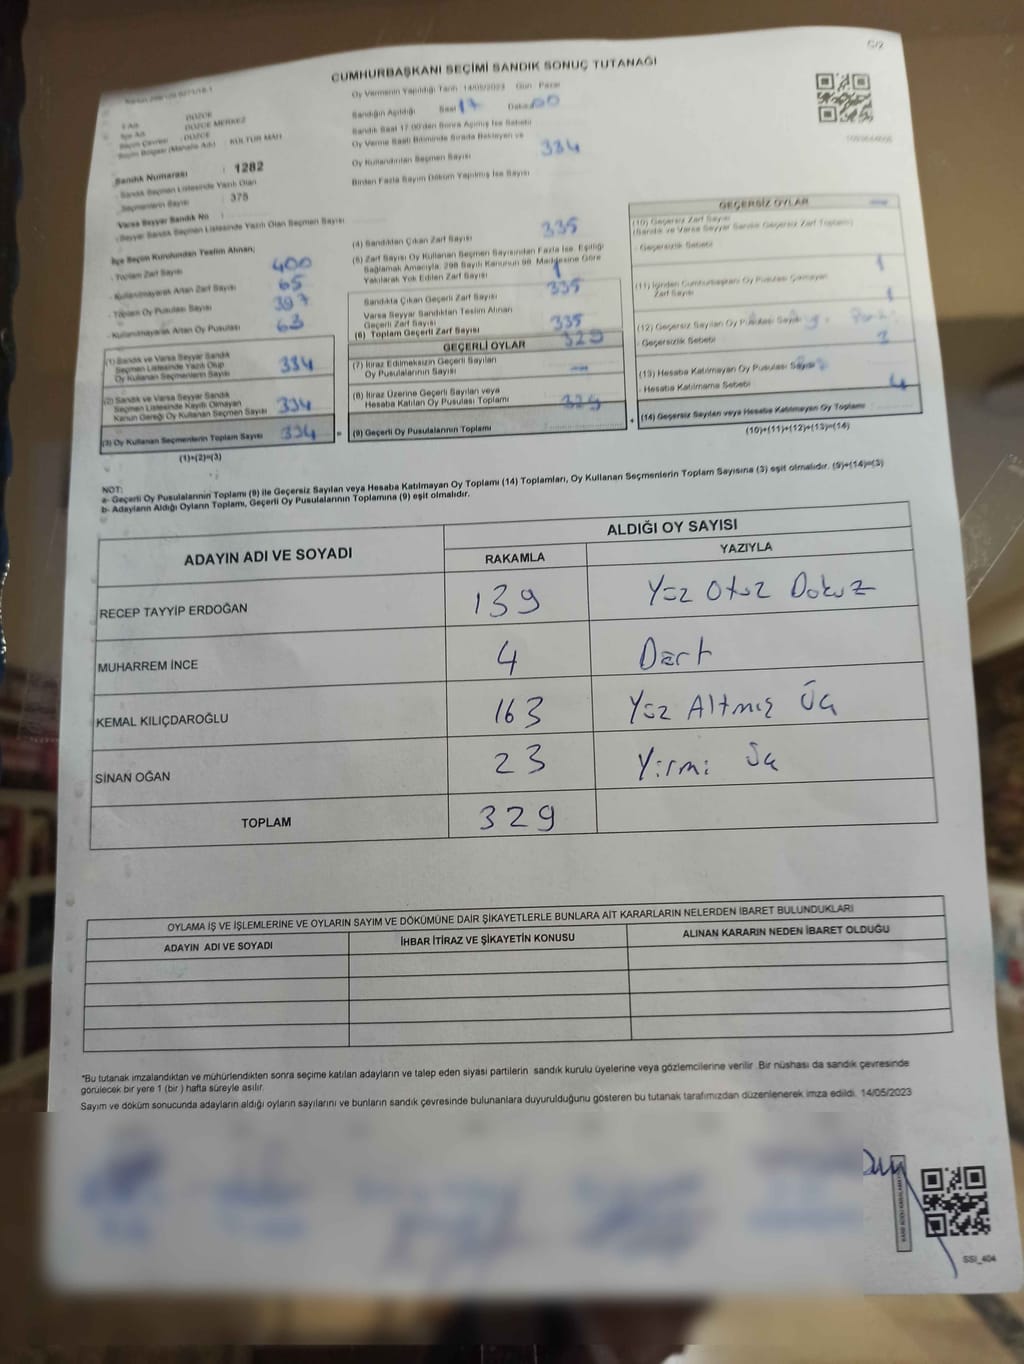 C/2
CUMHURBAŞKANI SEÇİMİ SANDIK SONUÇ TUTANAĞI
Oy Vermenin Yapıldığı Tarih 14/05/2023 Gün Pazar
İl Adı DÜZCE
İlçe Adı DÜZCE MERKEZ
Seçim Çevresi DÜZCE
Seçim Bölgesi (Mahalle Adı) KÜLTÜR MAH
Sandık Numarası : 1282
- Sandık Seçmen Listesinde Yazılı Olan
Seçmenlerin Sayısı : 375
Varsa Seyyar Sandık No
- Seyyar Sandık Seçmen Listesinde Yazılı Olan Seçmen Sayısı
İlçe Seçim Kurulundan Teslim Alınan;
- Toplam Zarf Sayısı 400
- Kullanılmayarak Artan Zarf Sayısı 65
- Toplam Oy Pusulası Sayısı 397
- Kullanılmayarak Artan Oy Pusulası 63
(1) Sandık ve Varsa Seyyar Sandık
Seçmen Listesinde Yazılı Olup
Oy Kullanan Seçmenlerin Sayısı 334
(2) Sandık ve Varsa Seyyar Sandık
Seçmen Listesinde Kayıtlı Olmayan
Kanun Gereği Oy Kullanan Seçmen Sayısı 334
(3) Oy Kullanan Seçmenlerin Toplam Sayısı 334
(1)+(2)=(3)
Sandığın Açıldığı Saat 17 Dakika 00
Sandık Saat 17.00'den Sonra Açılmış İse Sebebi
Oy Verme Saati Bitiminde Sırada Bekleyen ve
Oy Kullandırılan Seçmen Sayısı 334
Birden Fazla Sayım Döküm Yapılmış İse Sayısı
(4) Sandıktan Çıkan Zarf Sayısı 335
(5) Zarf Sayısı Oy Kullanan Seçmen Sayısından Fazla İse, Eşitliği
Sağlamak Amacıyla, 298 Sayılı Kanunun 98. Maddesine Göre
Yakılarak Yok Edilen Zarf Sayısı 1
Sandıkta Çıkan Geçerli Zarf Sayısı 335
Varsa Seyyar Sandıktan Teslim Alınan
Geçerli Zarf Sayısı
(6) Toplam Geçerli Zarf Sayısı 335
GEÇERLİ OYLAR 329
(7) İtiraz Edilmeksizin Geçerli Sayılan
Oy Pusulalarının Sayısı
(8) İtiraz Üzerine Geçerli Sayılan veya
Hesaba Katılan Oy Pusulası Toplamı 329
(9) Geçerli Oy Pusulalarının Toplamı
GEÇERSİZ OYLAR
(10) Geçersiz Zarf Sayısı
(Sandık ve Varsa Seyyar Sandık Geçersiz Zarf Toplamı)
- Geçersizlik Sebebi
1
(11) İçinden Cumhurbaşkanı Oy Pusulası Çıkmayan
Zarf Sayısı 1
(12) Geçersiz Sayılan Oy Pusulası Sayısı
- Geçersizlik Sebebi 3
(13) Hesaba Katılmayan Oy Pusulası Sayısı
- Hesaba Katılmama Sebebi 4
(14) Geçersiz Sayılan veya Hesaba Katılmayan Oy Toplamı
(10)+(11)+(12)+(13)=(14)
NOT:
a- Geçerli Oy Pusulalarının Toplamı (9) ile Geçersiz Sayılan veya Hesaba Katılmayan Oy Toplamı (14) Toplamları, Oy Kullanan Seçmenlerin Toplam Sayısına (3) eşit olmalıdır. (9)+(14)=(3)
b- Adayların Aldığı Oyların Toplamı, Geçerli Oy Pusulalarının Toplamına (9) eşit olmalıdır.
ADAYIN ADI VE SOYADI ALDIĞI OY SAYISI
RAKAMLA YAZIYLA
RECEP TAYYİP ERDOĞAN 139 Yüz Otuz Dokuz
MUHARREM İNCE 4 Dört
KEMAL KILIÇDAROĞLU 163 Yüz Altmış Üç
SİNAN OĞAN 23 Yirmi Üç
TOPLAM 329
OYLAMA İŞ VE İŞLEMLERİNE VE OYLARIN SAYIM VE DÖKÜMÜNE DAİR ŞİKAYETLERLE BUNLARA AİT KARARLARIN NELERDEN İBARET BULUNDUKLARI
ADAYIN ADI VE SOYADI İHBAR İTİRAZ VE ŞİKAYETİN KONUSU ALINAN KARARIN NEDEN İBARET OLDUĞU
*Bu tutanak imzalandıktan ve mühürlendikten sonra seçime katılan adayların ve talep eden siyasi partilerin sandık kurulu üyelerine veya gözlemcilerine verilir. Bir nüshası da sandık çevresinde
görülecek bir yere 1 (bir) hafta süreyle asılır.
Sayım ve döküm sonucunda adayların aldığı oyların sayılarını ve bunların sandık çevresinde bulunanlara duyurulduğunu gösteren bu tutanak tarafımızdan düzenlenerek imza edildi. 14/05/2023
SSI_404